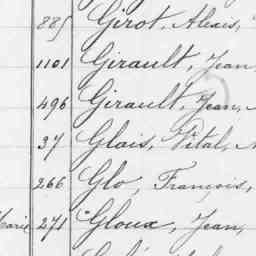 885 Girot, Alexis,
1101 Girault, Jean
496 Girault, Jean,
37 Glais, Vital,
266 Glo, François,
Marie 271 Gloux, Jean,